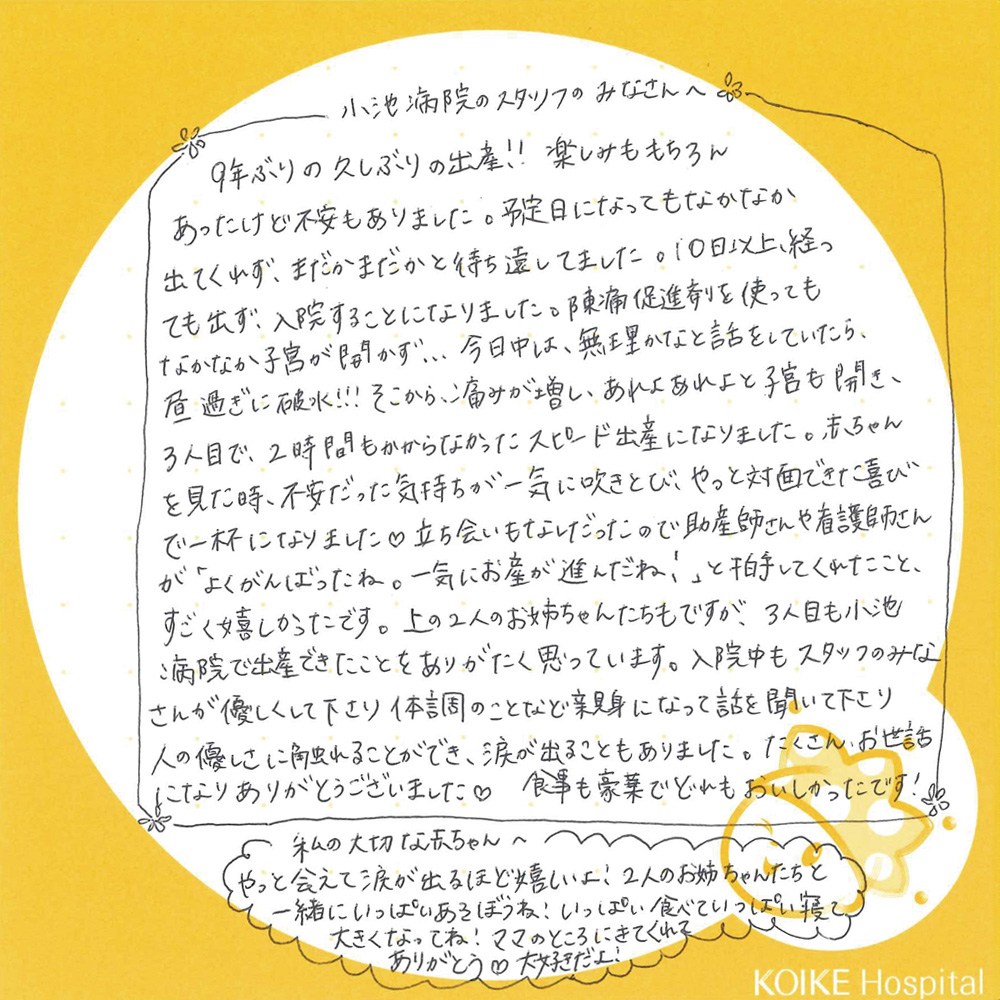 小池病院のスタッフの みなさんへ
9年ぶりの久しぶりの出産!! 楽しみももちろん
あったけど不安もありました。予定日になってもなかなか
出てくれず、まだかまだかと待ち遠してました。10日以上、経っ
ても出ず、入院することになりました。陣痛促進剤を使っても
なかなか子宮が開かず... 今日中は、無理かなと話をしていたら、
昼過ぎに破水!!! そこから、痛みが増し、あれよあれよと子宮も開き、
3人目で、2時間もかからなかったスピード出産になりました。赤ちゃん
を見た時、不安だった気持ちが一気に吹きとび、やっと対面できた喜び
で一杯になりました♡ 立ち会いもなしだったので助産師さんや看護師さん
が「よくがんばったね。一気にお産が進んだね!」と拍手してくれたこと、
すごく嬉しかったです。上の2人のお姉ちゃんたちもですが、3人目も小池
病院で出産できたことをありがたく思っています。入院中も スタッフのみな
さんが優しくして下さり 体調のことなど親身になって話を聞いて下さり
人の優しさに触れることができ、涙が出ることもありました。たくさん、お世話
になりありがとうございました♡ 食事も豪華でどれもおいしかったです!
私の大切な赤ちゃんへ
やっと会えて涙が出るほど嬉しいよ! 2人のお姉ちゃんたちと
一緒にいっぱいあそぼうね! いっぱい食べていっぱい寝て
大きくなってね! ママのところにきてくれて
ありがとう♡ 大好きだよ!
KOIKE Hospital